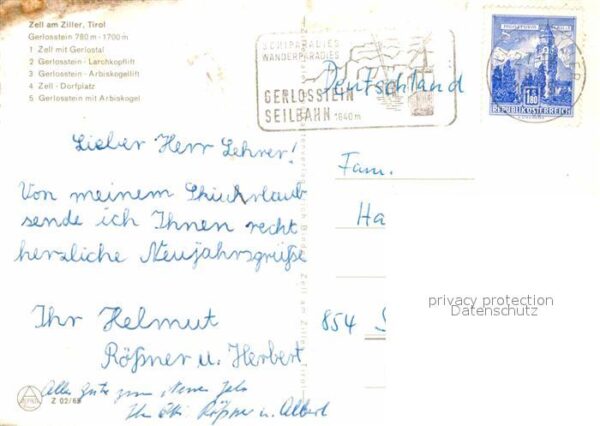 Zell am Ziller, Tirol
Gerlosstein 780 m - 1700 m
1 Zell mit Gerlostal
2 Gerlosstein - Larchkopflift
3 Gerlosstein - Arbiskogellift
4 Zell - Dorfplatz
5 Gerlosstein mit Arbiskogel
SCHIPARADIES
WANDERPARADIES
GERLOSSTEIN
SEILBAHN 1640m
Deutschland
1.80
REPUBLIK ÖSTERREICH
Lieber Herr Lehrer!
Von meinem Schiurlaub
sende ich Ihnen recht
herzliche Neujahrsgrüße
Ihr Helmut
Rößner u. Herbert
Alles Gute zum Neuen Jahr
Rößner u. Albert
Z 02/65
Fam.
Ha
854
privacy protection
Datenschutz